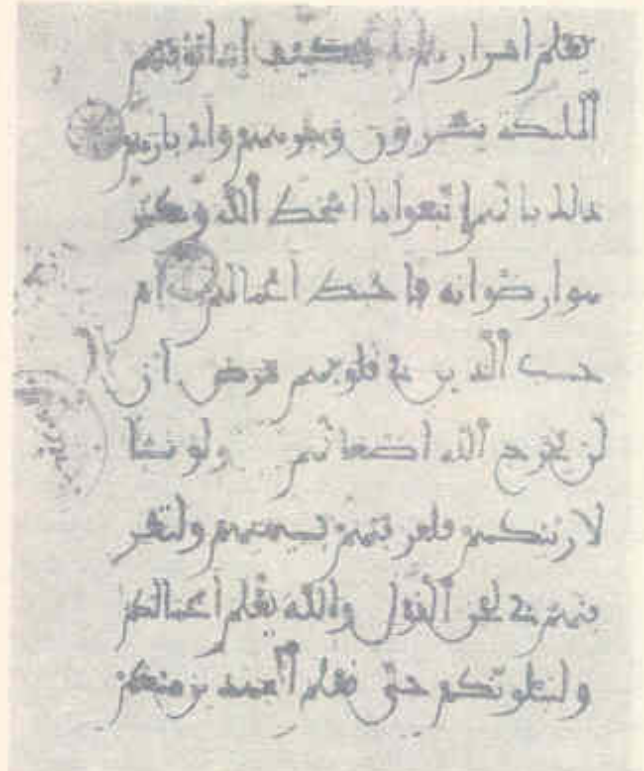 يعلم اسرارهم فكيف إذا توفتهم
الملكة يضربون وجوههم وأدبارهم
ذلك بأنهم اتبعوا ما اسخط الله وكر
هوا رضوانه فأحبط أعمالهم أم
حسب الذين في قلوبهم مرض أن
لن يخرج الله اضغانهم ولو نشا
لارينكهم فلعرفتهم بسيمهم ولتعر
فنهم في لحن القول والله يعلم أعمالكم
ولنبلونكم حتى نعلم المجهدين منكم